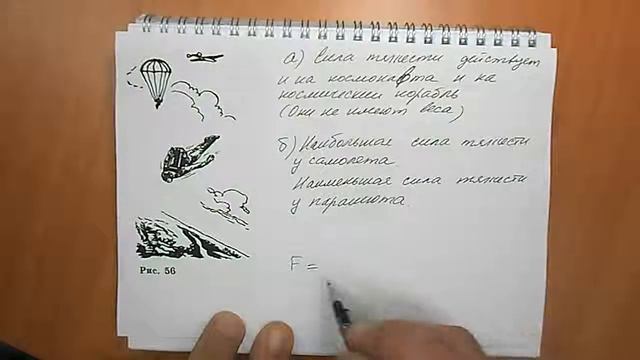 а) Сила тяжести действует
и на космонавта и на
космический корабль
(Они не имеют веса)
б) Наибольшая сила тяжести
у самолета.
Наименьшая сила тяжести
у парашюта.
F =
Рис. 56